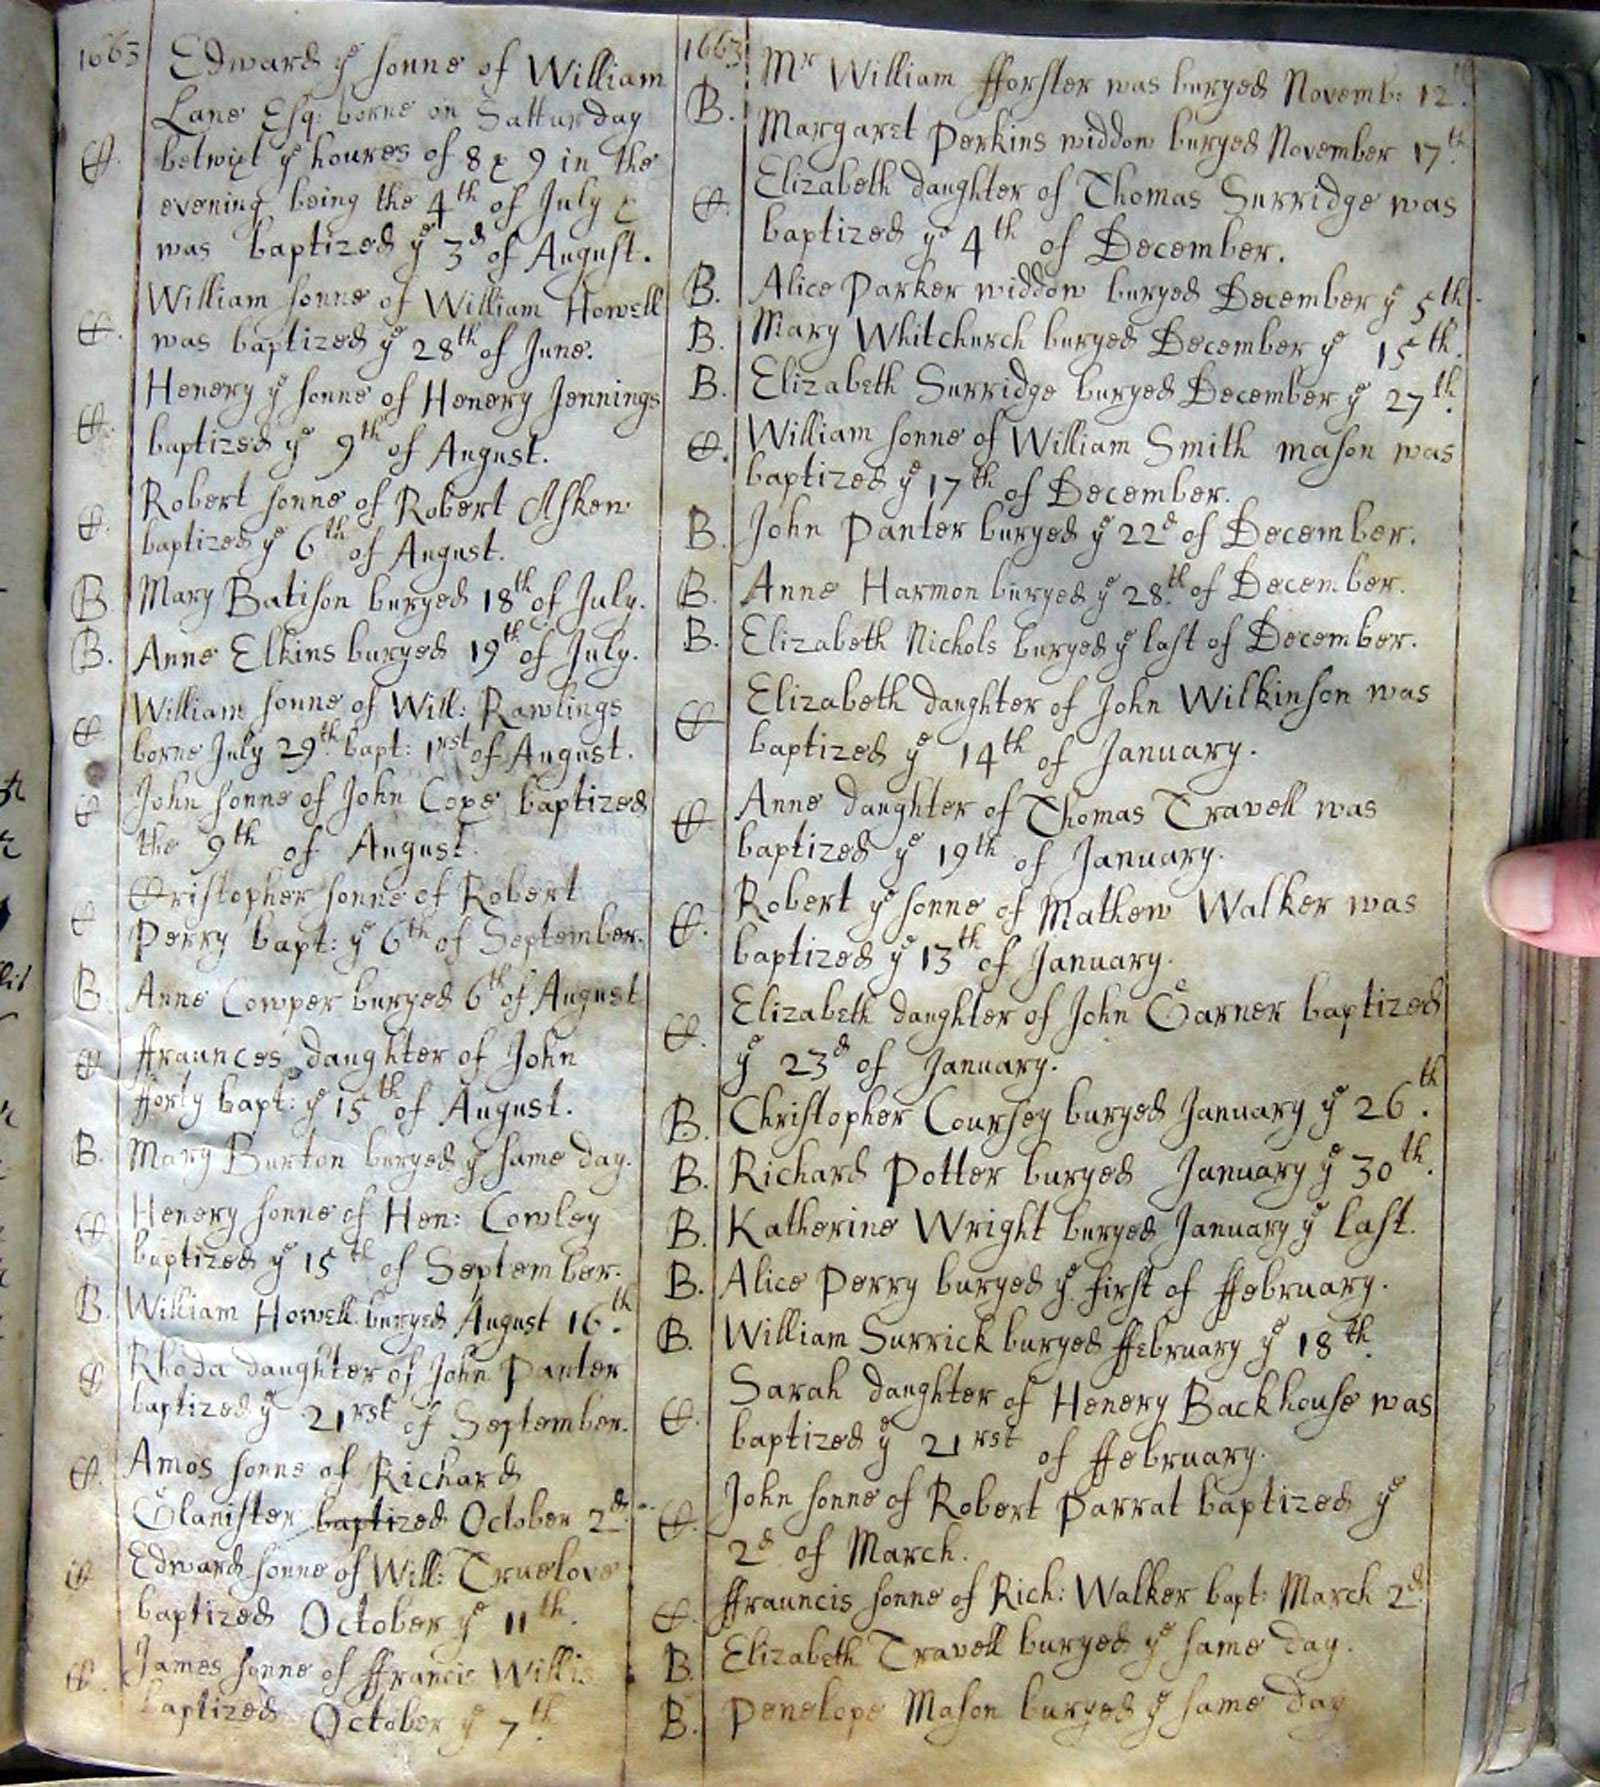 1663
Edward yᵉ sonne of William
Lane Esq: borne on Satturday
C. betwixt yᵉ houres of 8 & 9 in the
evening being the 4th of July &
was baptized yᵉ 3d of August.
William sonne of William Howell
C. was baptized yᵉ 28th of June.
Henery yᵉ sonne of Henery Jennings
C. baptized yᵉ 9th of August.
Robert sonne of Robert Askew
C. baptized yᵉ 6th of August.
B. Mary Batison buryed 18th of July.
B. Anne Elkins buryed 19th of July.
William sonne of Will: Rawlings
C. borne July 29th bapt: 1rst of August.
C. John sonne of John Cope baptized
the 9th of August.
Cristopher sonne of Robert
C. Perry bapt: yᵉ 6th of September.
B. Anne Cowper buryed 6th of August
C. ffraunces daughter of John
fforty bapt: yᵉ 15th of August.
B. Mary Burton buryed yᵉ same day.
C. Henery sonne of Hen: Cowley
baptized yᵉ 15th of September.
B. William Howell buryed August 16th.
C. Rhoda daughter of John Panter
baptized yᵉ 21rst of September.
C. Amos sonne of Richard
Glanister baptized October 2d.
C. Edward sonne of Will: Truelove
baptized October yᵉ 11th.
C. James sonne of ffrancis Willis
baptized October yᵉ 7th.
1663
Mr William fforster was buryed Novemb: 12th.
B. Margaret Perkins widdow buryed November 17th.
C. Elizabeth daughter of Thomas Surridge was
baptized yᵉ 4th of December.
B. Alice Parker widdow buryed December yᵉ 5th.
B. Mary Whitchurch buryed December yᵉ 15th.
B. Elizabeth Surridge buryed December yᵉ 27th.
C. William sonne of William Smith mason was
baptized yᵉ 17th of December.
B. John Panter buryed yᵉ 22d of December.
B. Anne Harmon buryed yᵉ 28th of December.
B. Elizabeth Nichols buryed yᵉ last of December.
C. Elizabeth daughter of John Wilkinson was
baptized yᵉ 14th of January.
C. Anne daughter of Thomas Travell was
baptized yᵉ 19th of January.
C. Robert yᵉ sonne of Mathew Walker was
baptized yᵉ 13th of January.
C. Elizabeth daughter of John Garner baptized
yᵉ 23d of January.
B. Christopher Coursey buryed January yᵉ 26th.
B. Richard Potter buryed January yᵉ 30th.
B. Katherine Wright buryed January yᵉ last.
B. Alice Perry buryed yᵉ first of ffebruary.
B. William Surrick buryed ffebruary yᵉ 18th.
C. Sarah daughter of Henery Backhouse was
baptized yᵉ 21rst of ffebruary.
C. John sonne of Robert Parrat baptized yᵉ
2d of March.
C. ffrauncis sonne of Rich: Walker bapt: March 2d.
B. Elizabeth Travell buryed yᵉ same day.
B. Penelope Mason buryed yᵉ same day